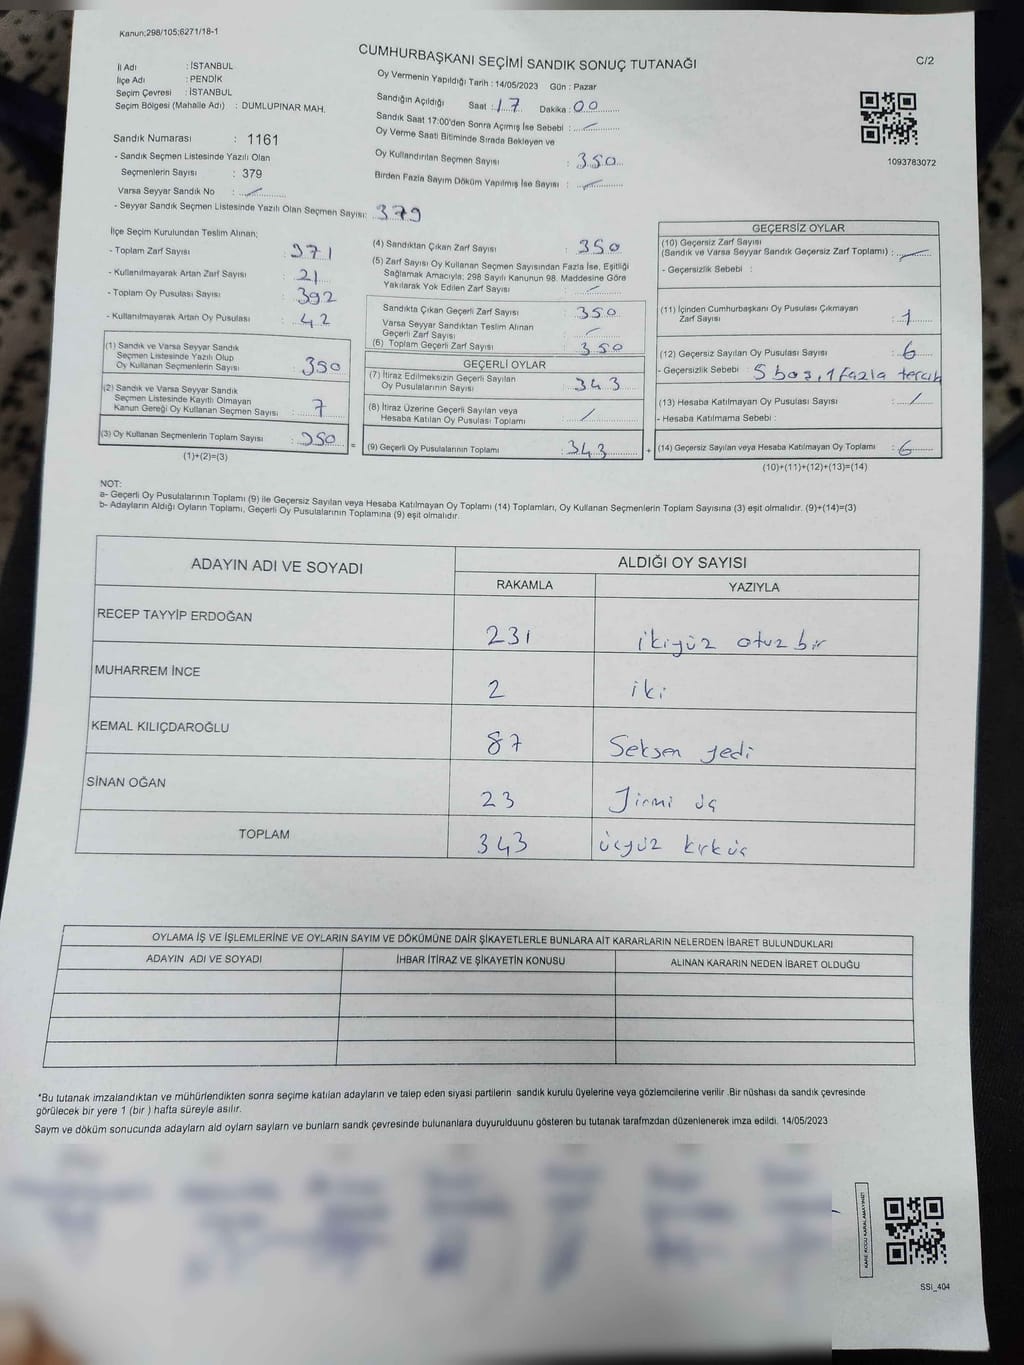 Kanun;298/105;6271/18-1
CUMHURBAŞKANI SEÇİMİ SANDIK SONUÇ TUTANAĞI
C/2
İl Adı : İSTANBUL
İlçe Adı : PENDİK
Seçim Çevresi : İSTANBUL
Seçim Bölgesi (Mahalle Adı) : DUMLUPINAR MAH.
Sandık Numarası : 1161
- Sandık Seçmen Listesinde Yazılı Olan
Seçmenlerin Sayısı : 379
Varsa Seyyar Sandık No :
- Seyyar Sandık Seçmen Listesinde Yazılı Olan Seçmen Sayısı: 379
Oy Vermenin Yapıldığı Tarih : 14/05/2023 Gün : Pazar
Sandığın Açıldığı Saat : 17 Dakika : 00
Sandık Saat 17:00'den Sonra Açımış İse Sebebi :
Oy Verme Saati Bitiminde Sırada Bekleyen ve
Oy Kullandırılan Seçmen Sayısı : 350
Birden Fazla Sayım Döküm Yapılmış İse Sayısı :
1093783072
İlçe Seçim Kurulundan Teslim Alınan;
- Toplam Zarf Sayısı : 371
- Kullanılmayarak Artan Zarf Sayısı : 21
- Toplam Oy Pusulası Sayısı : 392
- Kullanılmayarak Artan Oy Pusulası : 42
(1) Sandık ve Varsa Seyyar Sandık
Seçmen Listesinde Yazılı Olup
Oy Kullanan Seçmenlerin Sayısı : 350
(2) Sandık ve Varsa Seyyar Sandık
Seçmen Listesinde Kayıtlı Olmayan
Kanun Gereği Oy Kullanan Seçmen Sayısı : 7
(3) Oy Kullanan Seçmenlerin Toplam Sayısı : 350
(1)+(2)=(3)
=
(4) Sandıktan Çıkan Zarf Sayısı : 350
(5) Zarf Sayısı Oy Kullanan Seçmen Sayısından Fazla İse, Eşitliği
Sağlamak Amacıyla; 298 Sayılı Kanunun 98. Maddesine Göre
Yakılarak Yok Edilen Zarf Sayısı :
Sandıkta Çıkan Geçerli Zarf Sayısı : 350
Varsa Seyyar Sandıktan Teslim Alınan
Geçerli Zarf Sayısı :
(6) Toplam Geçerli Zarf Sayısı : 350
GEÇERLİ OYLAR
(7) İtiraz Edilmeksizin Geçerli Sayılan
Oy Pusulalarının Sayısı : 343
(8) İtiraz Üzerine Geçerli Sayılan veya
Hesaba Katılan Oy Pusulası Toplamı :
(9) Geçerli Oy Pusulalarının Toplamı : 343
+
GEÇERSİZ OYLAR
(10) Geçersiz Zarf Sayısı
(Sandık ve Varsa Seyyar Sandık Geçersiz Zarf Toplamı) :
- Geçersizlik Sebebi :
(11) İçinden Cumhurbaşkanı Oy Pusulası Çıkmayan
Zarf Sayısı : 1
(12) Geçersiz Sayılan Oy Pusulası Sayısı : 6
- Geçersizlik Sebebi : 5 boş, 1 fazla tercih
(13) Hesaba Katılmayan Oy Pusulası Sayısı :
- Hesaba Katılmama Sebebi :
(14) Geçersiz Sayılan veya Hesaba Katılmayan Oy Toplamı : 6
(10)+(11)+(12)+(13)=(14)
NOT:
a- Geçerli Oy Pusulalarının Toplamı (9) ile Geçersiz Sayılan veya Hesaba Katılmayan Oy Toplamı (14) Toplamları, Oy Kullanan Seçmenlerin Toplam Sayısına (3) eşit olmalıdır. (9)+(14)=(3)
b- Adayların Aldığı Oyların Toplamı, Geçerli Oy Pusulalarının Toplamına (9) eşit olmalıdır.
ADAYIN ADI VE SOYADI ALDIĞI OY SAYISI
RAKAMLA YAZIYLA
RECEP TAYYİP ERDOĞAN 231 ikiyüz otuz bir
MUHARREM İNCE 2 iki
KEMAL KILIÇDAROĞLU 87 Seksen yedi
SİNAN OĞAN 23 Yirmi üç
TOPLAM 343 üçyüz kırküç
OYLAMA İŞ VE İŞLEMLERİNE VE OYLARIN SAYIM VE DÖKÜMÜNE DAİR ŞİKAYETLERLE BUNLARA AİT KARARLARIN NELERDEN İBARET BULUNDUKLARI
ADAYIN ADI VE SOYADI İHBAR İTİRAZ VE ŞİKAYETİN KONUSU ALINAN KARARIN NEDEN İBARET OLDUĞU
*Bu tutanak imzalandıktan ve mühürlendikten sonra seçime katılan adayların ve talep eden siyasi partilerin sandık kurulu üyelerine veya gözlemcilerine verilir .Bir nüshası da sandık çevresinde
görülecek bir yere 1 (bir ) hafta süreyle asılır.
Saym ve döküm sonucunda adaylarn ald oylarn saylarn ve bunlarn sandk çevresinde bulunanlara duyurulduunu gösteren bu tutanak tarafmzdan düzenlenerek imza edildi. 14/05/2023
KARE KODU KARALAMAYINIZ!
SSI_404